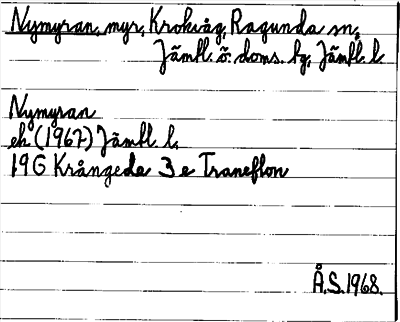 Nymyran, myr, Krokvåg, Ragunda sn,
Jämtl. ö. doms. fg, Jämtl. l.
Nymyran
ek (1967) Jämtl. l.
19G Krångede 3e Traneflon
Å.S. 1968.